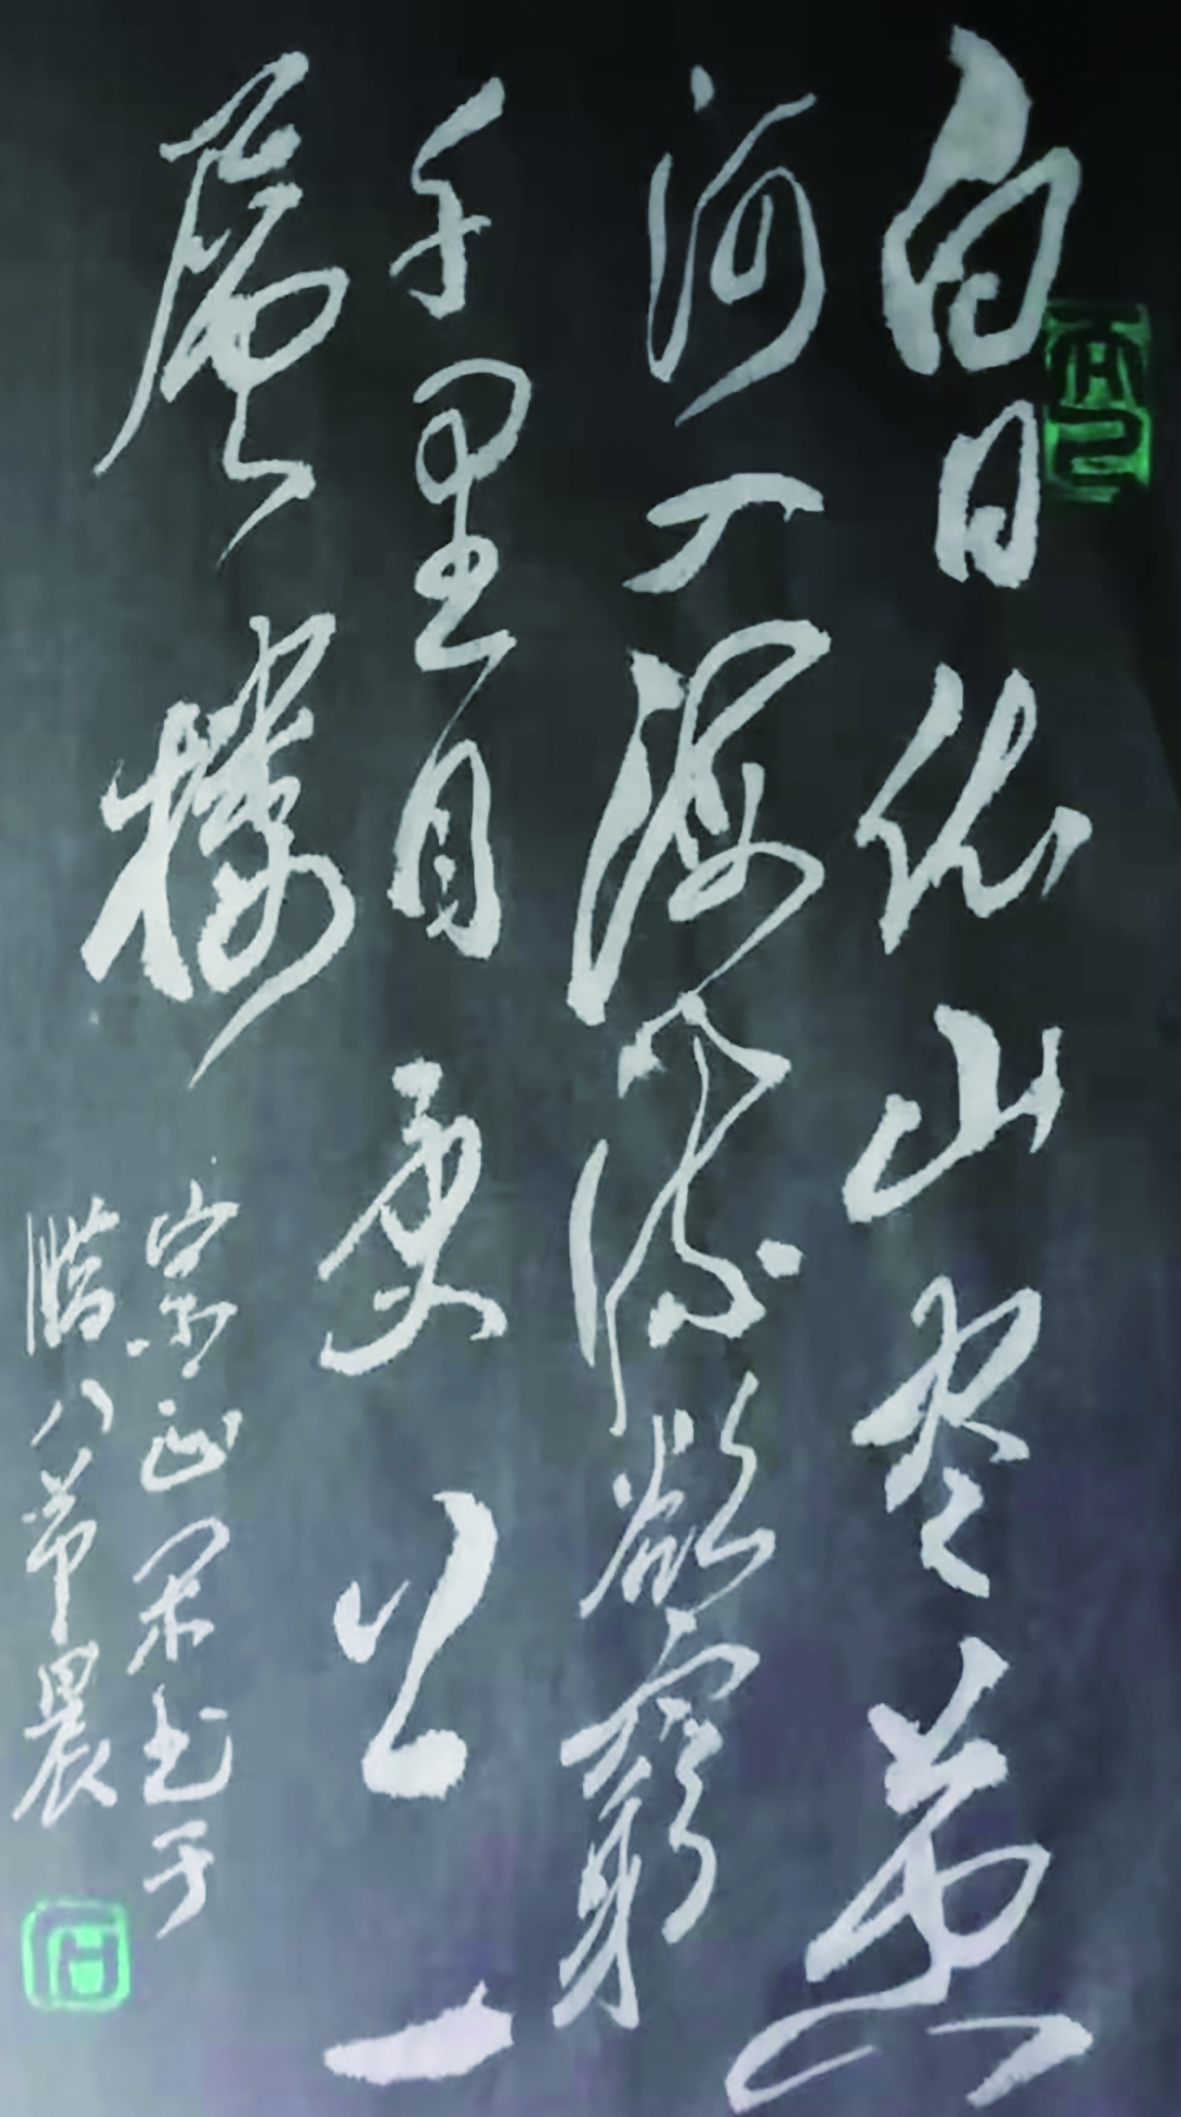 白日依山尽黄
河入海流欲窮
千里目更上一
層樓
书于
腊八节晨